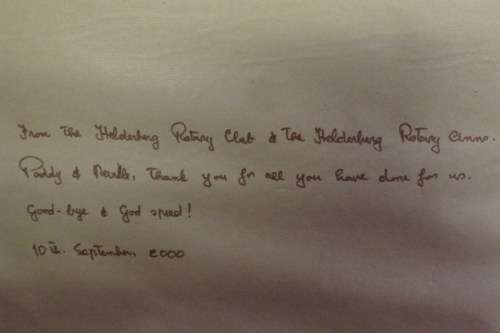 From the Helderberg Rotary Club & the Helderberg Rotary Anns.
Paddy & thank you for all you have done for us.
Good-bye & God speed!
10th. September, 2000